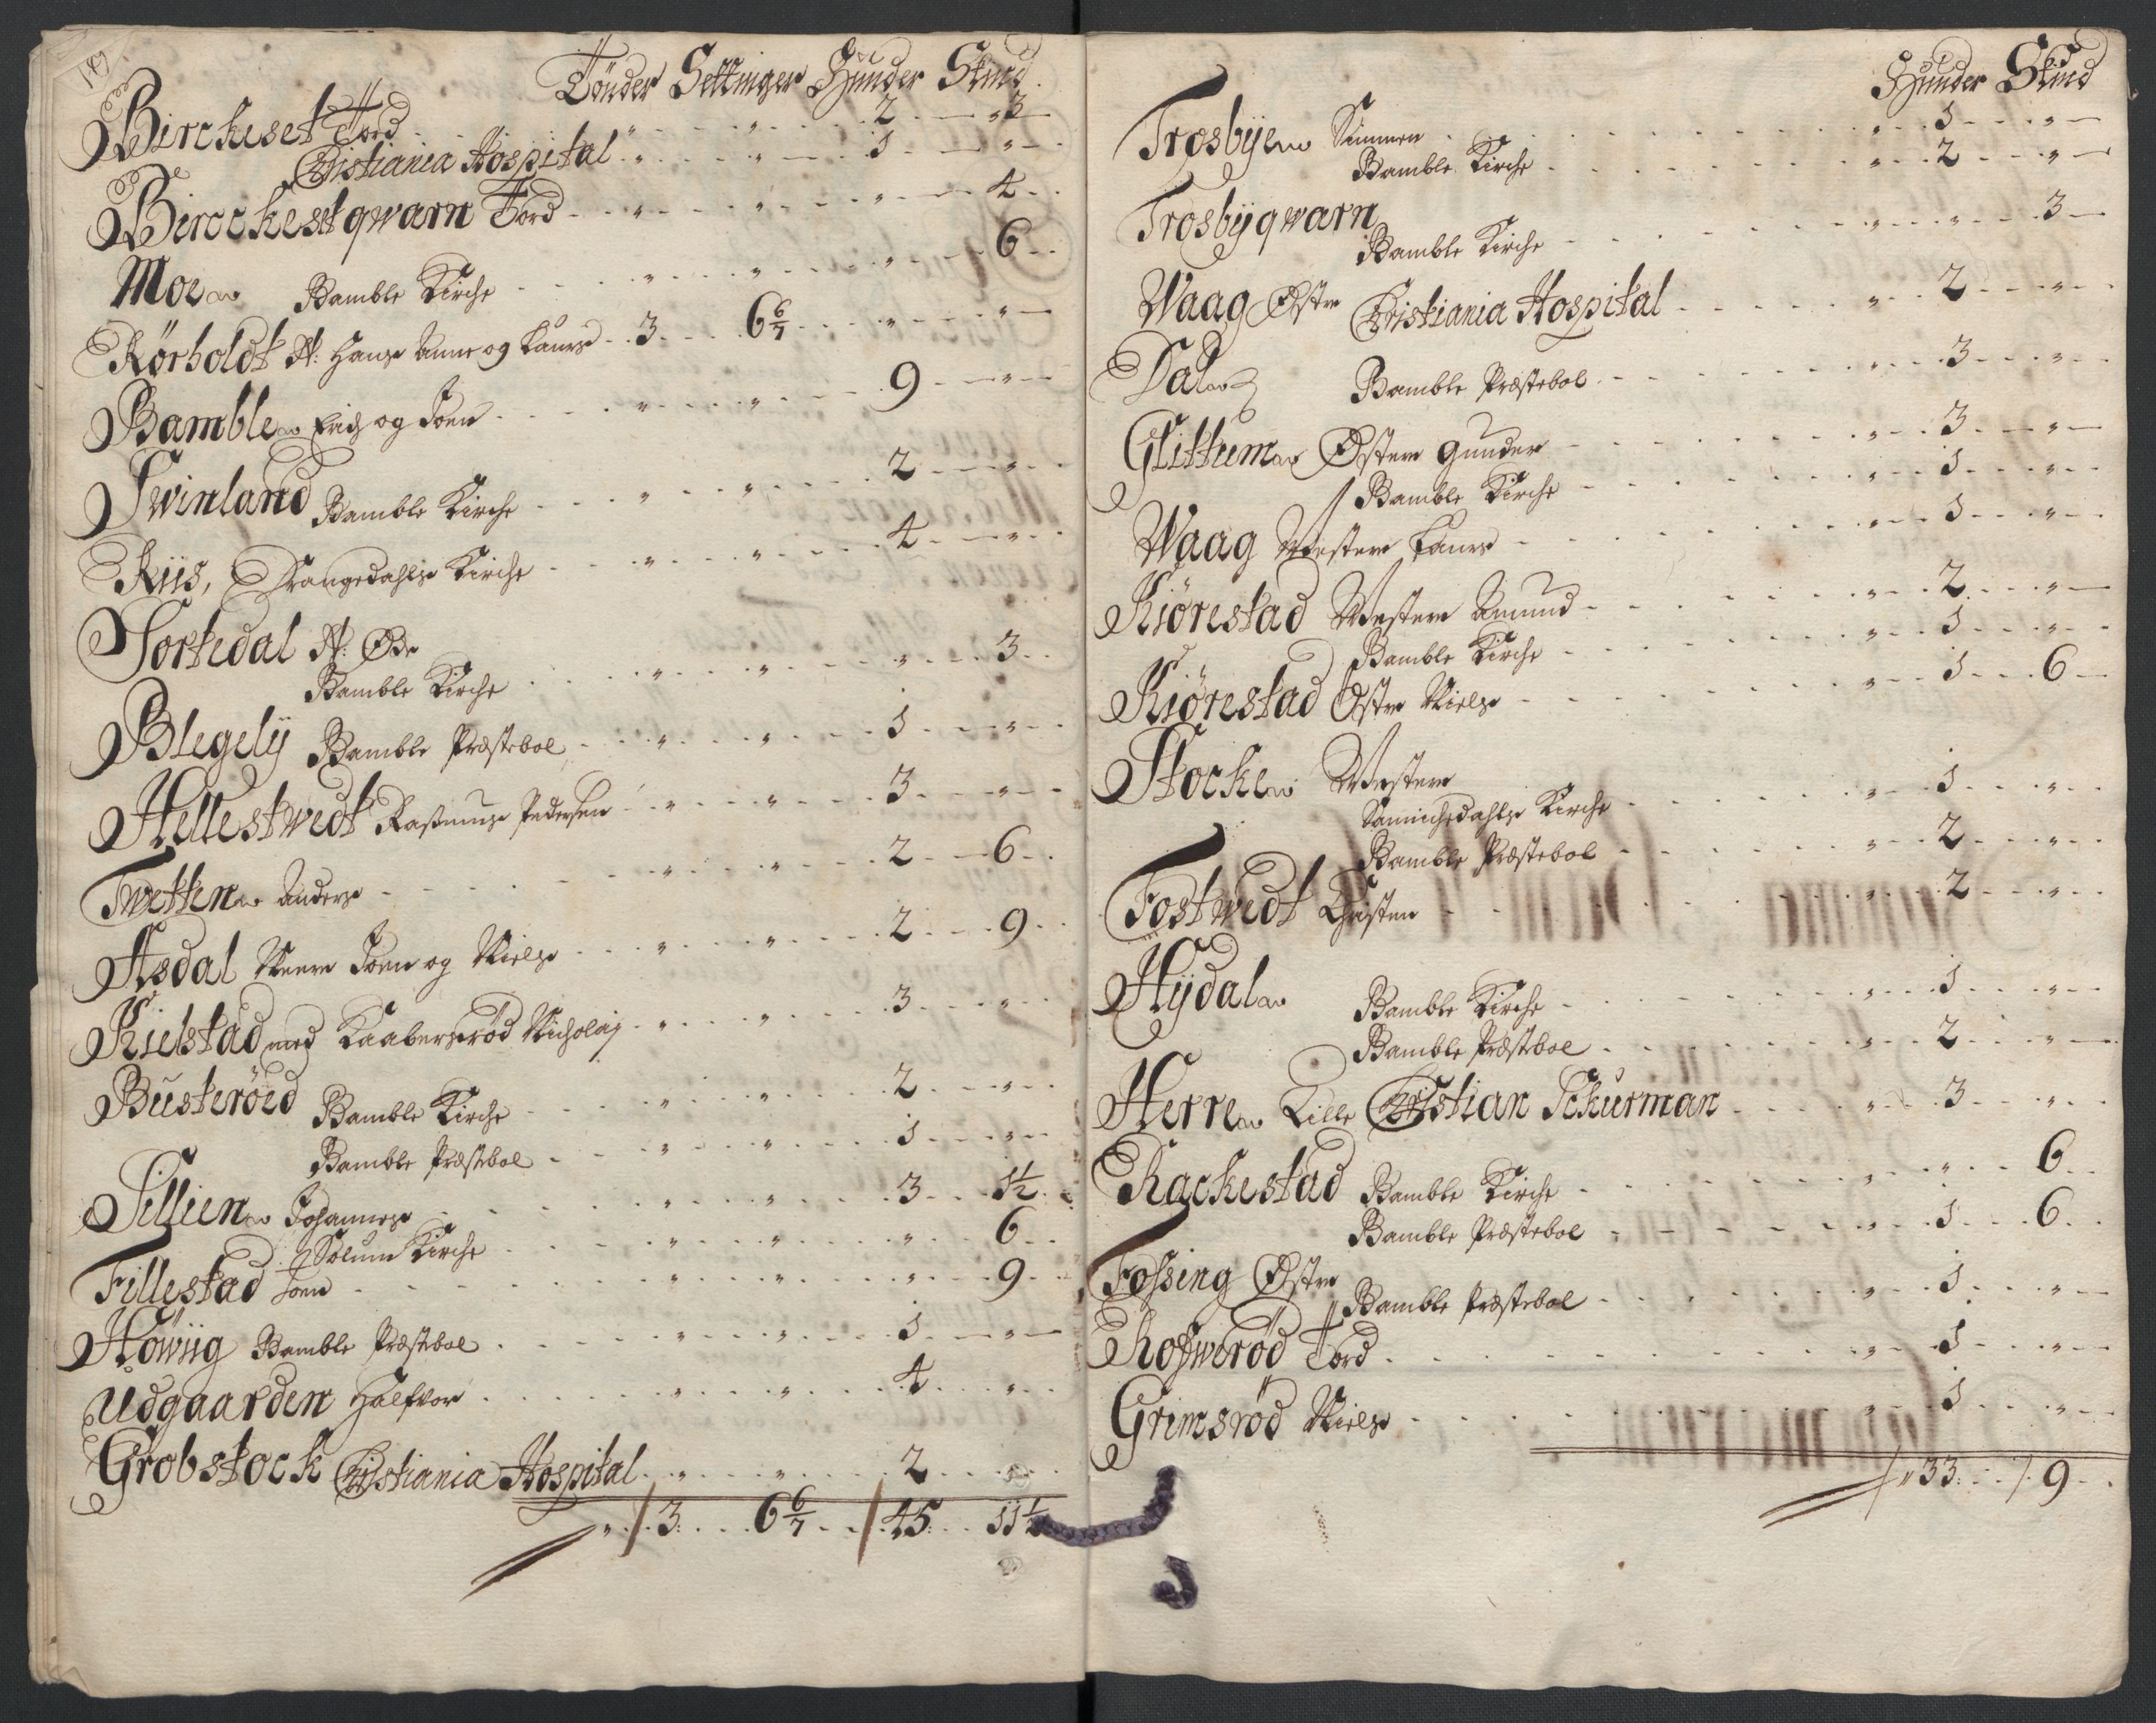 Tønder Settinger Huuder Skind
Birckeset Tord . . " . . " . . 2 . . 3
Christiania Hospital . . " . . " . . 1 . . "
Birckestqwarn Tord . . " . . " . . " . . 4
Moe Bamble Kirche . . " . . " . . " . . 6
Rörholdt N: Hans Anne og Laurs . . 3 . . 6 6/7 . . " . . "
Bamble Erich og Joen . . " . . " . . 9 . . "
Swinland Bamble Kirche . . " . . " . . 2 . . "
Riis, Drangedahls Kirche . . " . . " . . 4 . . "
Tortedal N: Øde
Bamble Kirche . . " . . " . . " . . 3
Blegelÿ Bamble Præstebol . . " . . " . . 1 . . "
Hellestwedt Rasmus Pedersen . . " . . " . . 3 . . "
Twetten Anders . . " . . " . . 2 . . 6
Asdal Joen og Niels . . " . . " . . 2 . . 9
Kielstad med Nicholaj . . " . . " . . 3 . . "
Busteröed Bamble Kirche . . " . . " . . 2 . . "
Bamble Præstebol . . " . . " . . 1 . . "
Tellien Johannes . . " . . " . . 3 . . 1 1/2
Solum Kirche . . " . . " . . " . . 6
Fillestad Joen . . " . . " . . " . . 9
Höwiig Bamble Præstebol . . " . . " . . 1 . . "
Udgaarden Halfvor . . " . . " . . 4 . . "
Grobstock Christiania Hospital . . " . . " . . 2 . . "
" . . 3 . . 6 6/7 . . 45 . . 11 1/2
Huuder Skind
Trosbÿe Simmen . . " . . 1 . . "
Bamble Kirche . . " . . 2 . . "
Trosbÿqwarn
Bamble Kirche . . " . . " . . 3
Waag Østre Christiania Hospital . . " . . 2 . . "
Dal Bamble Præstebol . . " . . 3 . . "
Glittum Østere Gunder . . " . . 3 . . "
Bamble Kirche . . " . . 1 . . "
Waag Westere Laurs . . " . . 1 . . "
Kiörestad Westere Amund . . " . . 2 . . "
Bamble Kirche . . " . . 1 . . "
Kiörestad Østre Niels . . " . . 1 . . 6
Stocke Westere
Sannichedahls Kirche . . " . . 1 . . "
Bamble Præstebol . . " . . 2 . . "
Fostwedt Christen . . " . . 2 . . "
Hÿdal Bamble Kirche . . " . . 1 . . "
Bamble Præstebol . . " . . 2 . . "
Herre Lille Christian Schurman . . " . . 3 . . "
Rackestad Bamble Kirche . . " . . " . . 6
Bamble Præstebol . . " . . 1 . . 6
Fossing Østre
Bamble Præstebol . . " . . 1 . . "
Roswiröd Tord . . " . . 1 . . "
Grimsröd Niels . . " . . 1 . . "
" 33 . . 9